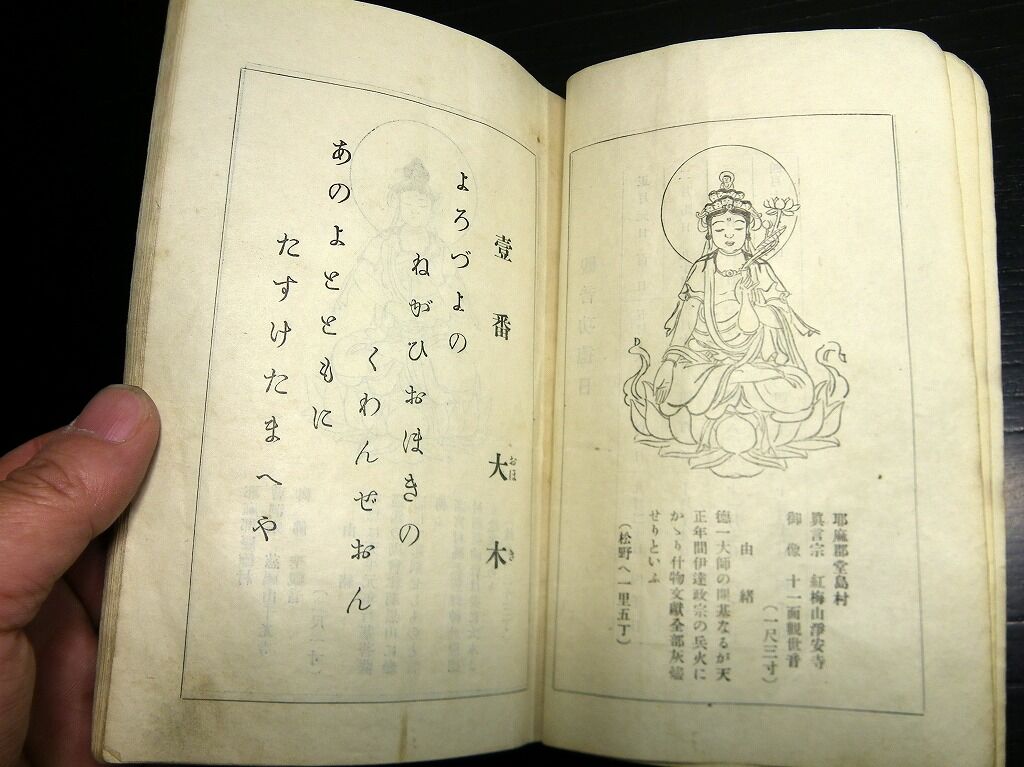 耶麻郡堂島村
眞言宗 紅梅山淨安寺
御像 十一面觀世音
(一尺三寸)
由緒
德一大師の開基なるが天
正年間伊達政宗の兵火に
かゝり什物文獻全部灰燼
せりといふ
(松野へ一里五丁)
壹番 大木
おほき
よろづよの
ねがひおほきの
くわんぜおん
あのよとともに
たすけたまへや